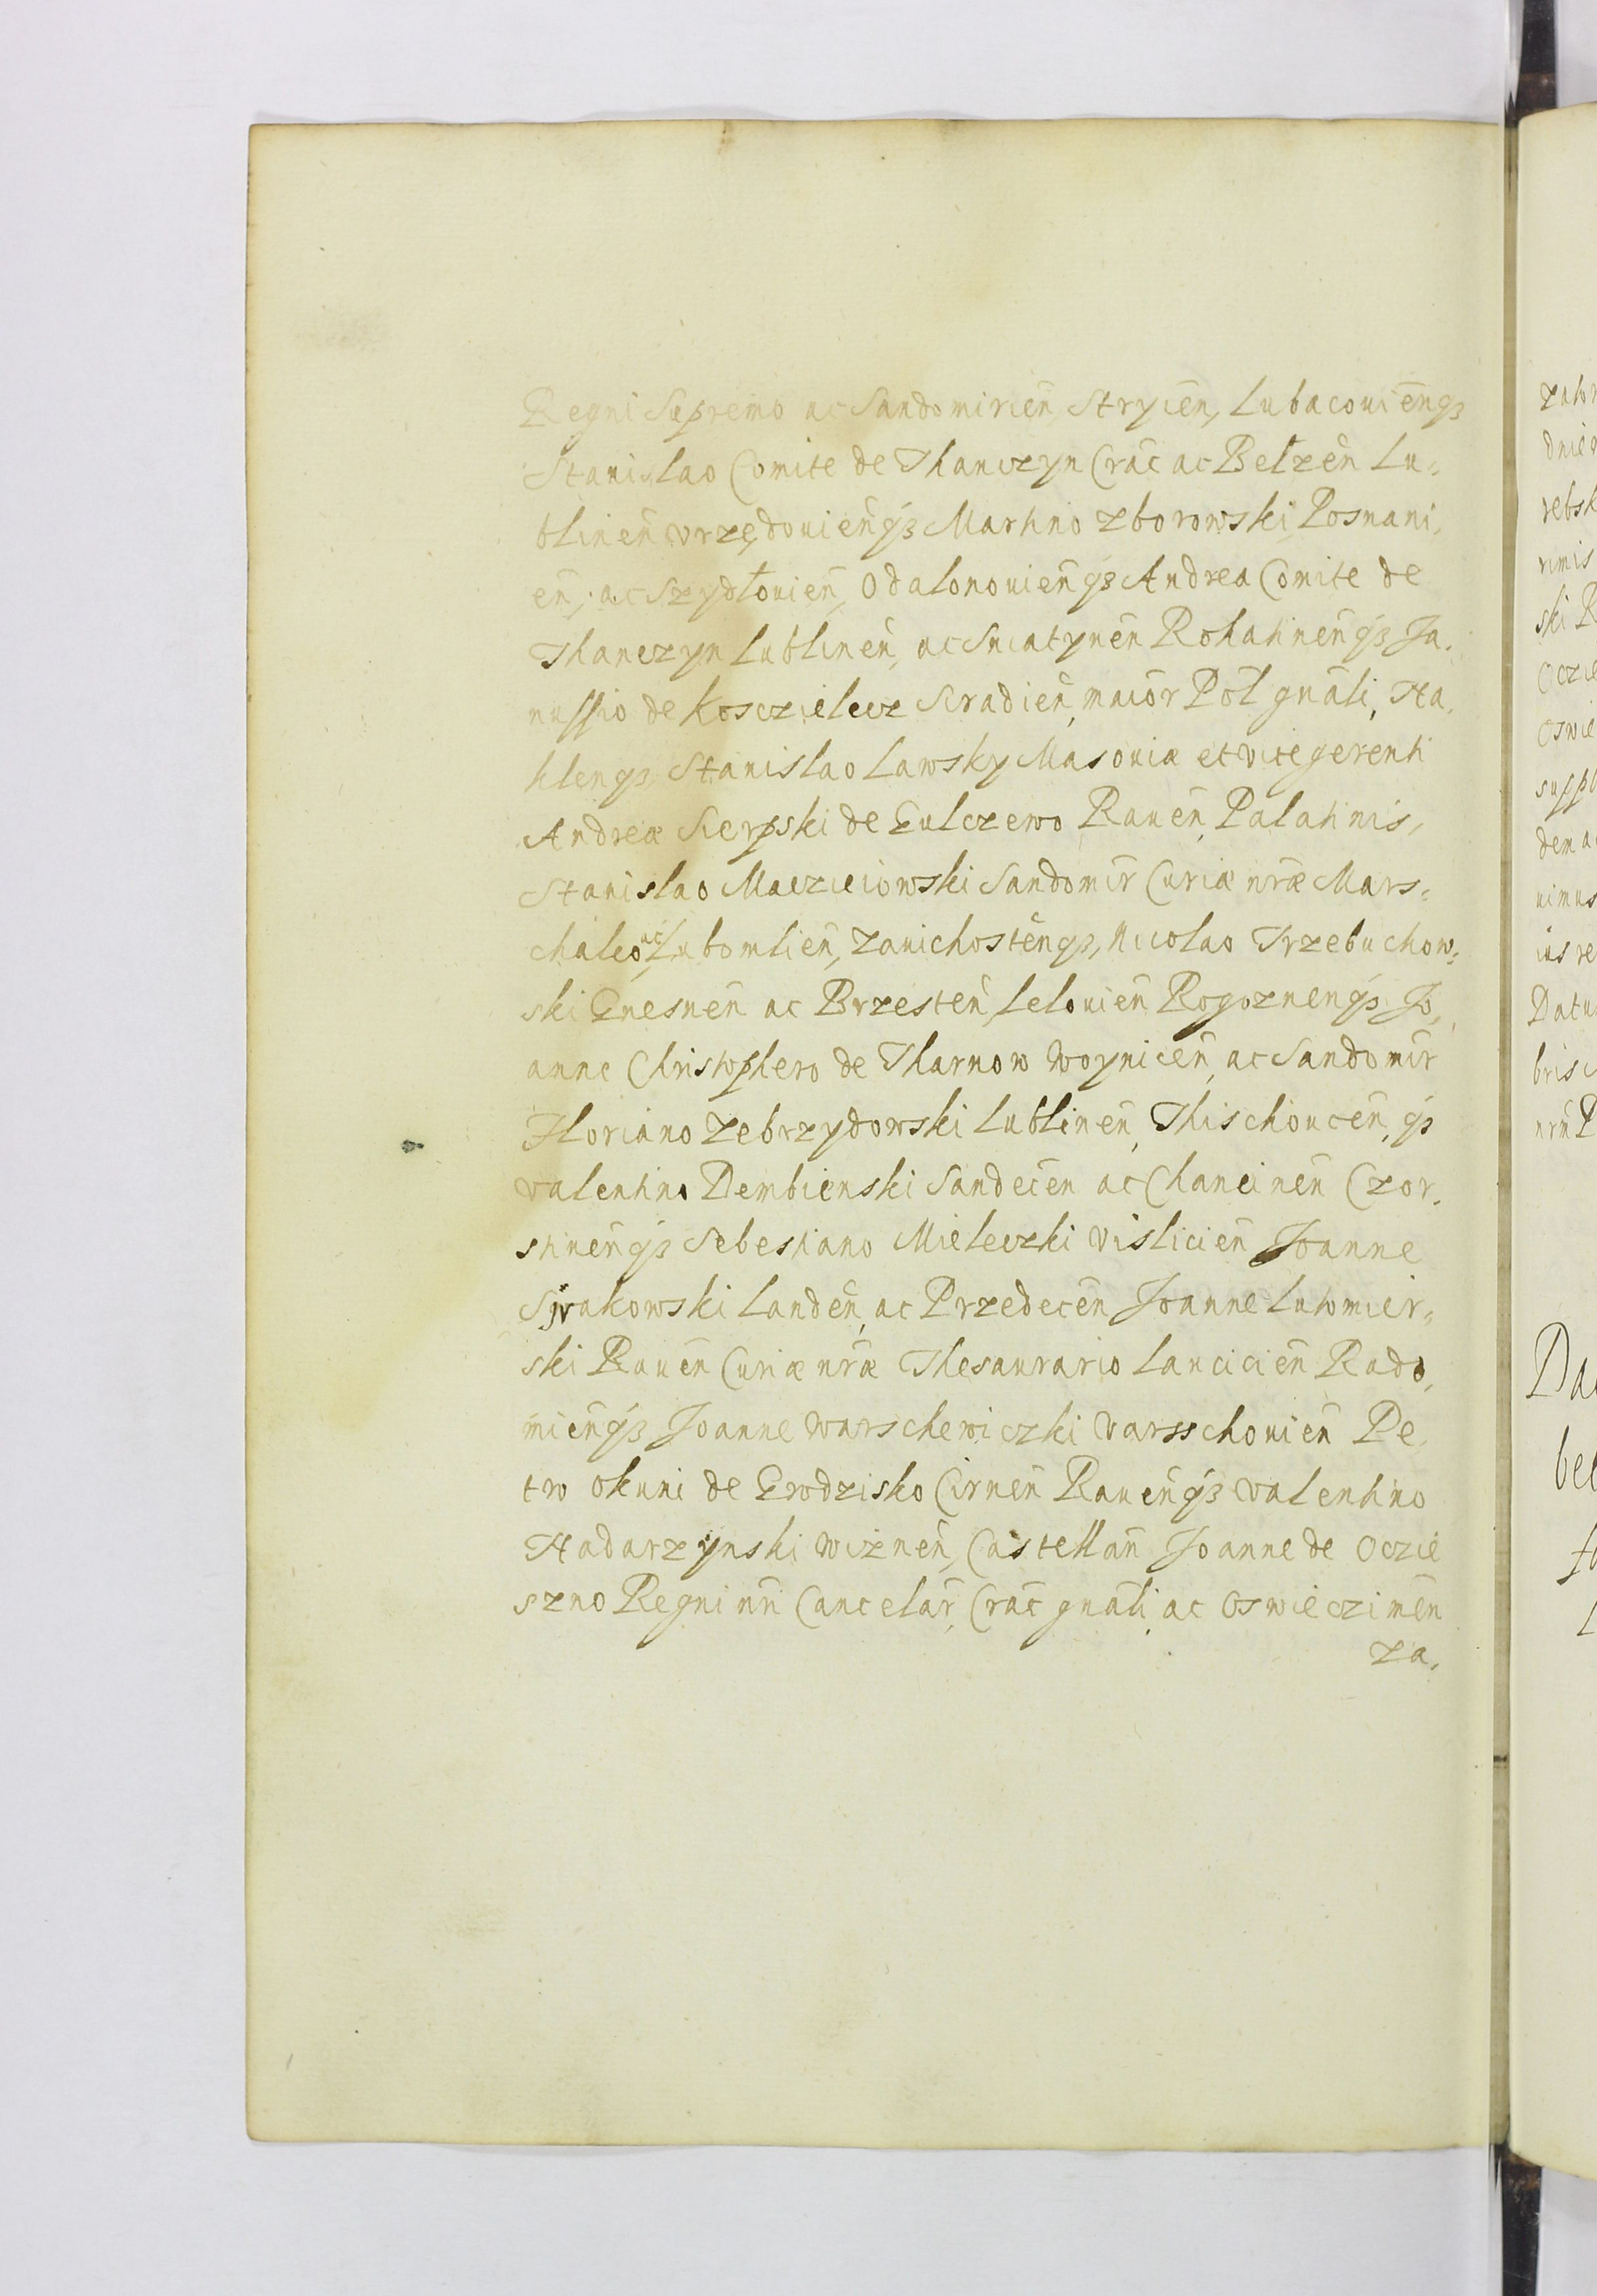 Regni Supremo ac Sandomirien̄, Stryien̄, Lubacouien̄qz
Stanislao Comite de Thanczyn Crac̄ ac Belzen̄ Lu-
blinen̄ vrzędouien̄qz Martino Zborowski, Posnani,
en̄, ac Szydłouien̄, Odalonouien̄qz Andrea Comite de
Thanczyn Lublinen̄, ac Sniatynen̄ Rohatinen̄qz Ja,
nussio de Kosczielecz Siradien̄, maior̄ Pol̄ gn̄ali, Na,
klenqz, Stanislao Lawsky Masoviæ et vicegerenti
Andreæ Sierpski de Gulczewo Rauen̄, Palatinis,
Stanislao Maczieiowski Sandomir̄ Curiæ nr̄æ Mars-
chalco, ac Lubomlien̄, Zauichosten̄qz, Nicolao Trzebuchow-
ski Gnesnen̄ ac Brzesten̄, Lelouien̄, Rogoznenqz, Jo,
anne Christophero de Tharnow Woynicen̄, ac Sandomir̄
Floriano Zebrzydowski Lublinen̄, Thischouicen̄, qz
Valentino Dembienski Sandecen̄ ac Chancinen̄ Czor,
stinen̄qz Sebestiano Mieleczki Vislicien̄ Joanne
Syrakowski Landen̄, ac Przedecen̄ Joanne Lutomier-
ski Rauen̄ Curiæ nr̄æ Thesaurario Lancicien̄ Rado,
mien̄qz Joanne Warschewiczki Varsschouien̄ Pe,
tro Okuni de Grodzisko Cirnen̄ Rauen̄qz Valentino
Nadarzynski Wiznen̄, Castellan̄ Joanne de Oczie
szno Regni nr̄i Cancelar̄, Crac̄ gn̄ali, ac Oswieczimen̄
Za,